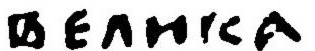 ВЕЛИКА